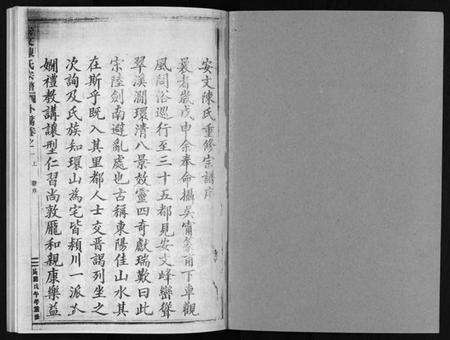 安文陳氏重修宗譜序
曩者歲戊申余奉命攝吳甯篆甫下車觀
風問俗巡行至三十五都見安文峰巒聳
翠溪澗環清八景效靈四奇獻瑞歎曰此
宗陸劍南避亂處也古稱東陽佳山水其
在斯乎既入其里都人士交晋謁列坐之
次詢及氏族知環山為宅皆潁川一派
嫻禮教講讓型仁習尚敦龐和親康樂益
安文陳氏宗譜